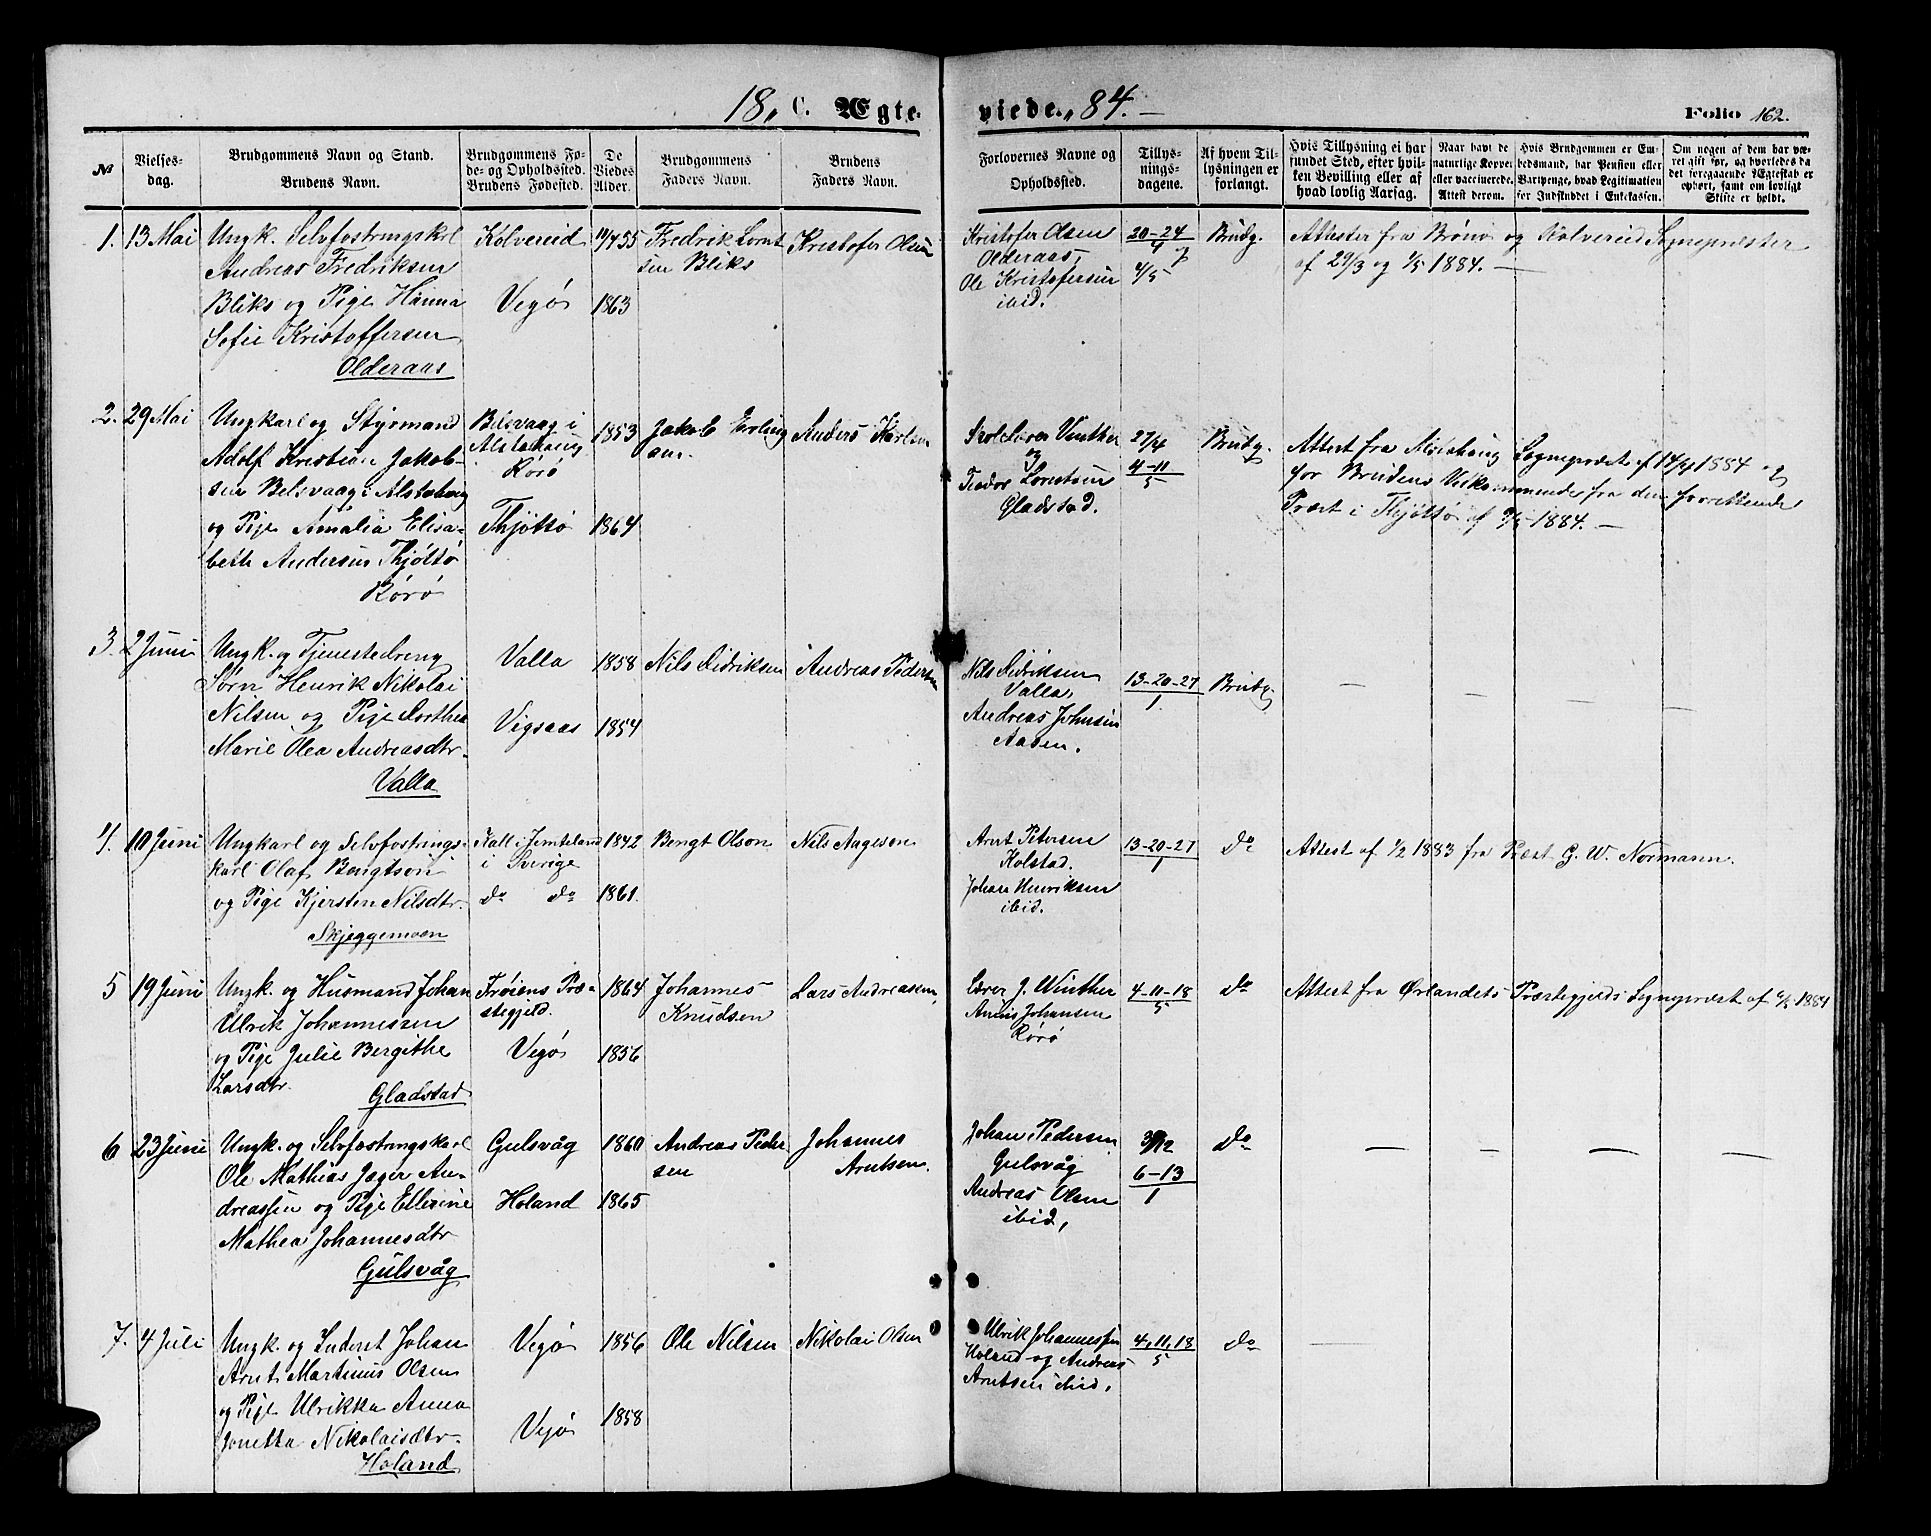 18, C. Ægte-
viede. „84. —
Folio 162.
№
Vielses-
dag.
Brudgommens Navn og Stand.
Brudens Navn.
Brudgommens Fø-
de- og Opholdssted.
Brudens Fødested.
De
Viedes
Alder.
Brudgommens
Faders Navn.
Brudens
Faders Navn.
Forlovernes Navne og
Opholdssted.
Tillys-
nings-
dagene.
Af hvem Til-
lysningen er
forlangt.
Hvis Tillysning ei har
fundet Sted, efter hvil-
ken Bevilling eller af
hvad lovlig Aarsag.
Naar havt de
naturlige Kopper
eller vaccinerede.
Attest derom.
Hvis Brudgommen er Em-
bedsmand, har Pension eller
Vartpenge, hvad Legitimation
for Indskuddet i Enkekassen.
Om nogen af dem har væ-
ret gift før, og hvorledes da
det foregaaende Ægteskab er
ophørt, samt om lovligt
Skifte er holdt.
1. 13 Mai
Ungk. Selvfostringskrl
Andreas Fredriksen
Bliks og Pige Hanna
Sofie Kristoffersen
Olderaas
Kolvereid
Vegø
11/4 55
1863
Fredrik Lornt
sen Bliks
Kristofer Olsen
Kristofer Olsen
Olderaas,
Ole Kristofersen
ibid.
20-24
4
4/5
Brudg.
Attester fra Brønø og Kolvereid Sognepræster
af 29/3 og 1/5 1884. —
2. 29 Mai
Ungkarl og Styrmand
Adolf Kristian Jakob-
sen Belsvaag i Alstahoug
og Pige Amalia Elisa-
beth Andersen Thjøttø
Rørø
Belsvaag i
Alstahaug
Rørø
Thjøttø
1853
1864
Jakob Erling
sen.
Anders Karlsen
Skolelærer Vinther
og
Teodor Lorntsen
Gladstad.
27/4
4-11
5
Brudg.
Attest fra Alstahaug Sognepræst af 14/4 1884 og
for Brudens Vedkommende fra den forrettende
Præst i Thjøttø af 9/5 1884. —
3. 2 Juni
Ungk. og Tjenestedreng
Sørn Henrik Nikolai
Nilsen og Pige Dorthea
Marie Olea Andreasdtr.
Valla
Valla
Vigsaas
1858
1854
Nils Didriksen
Andreas Pedersen
Nils Didriksen
Valla,
Andreas Johnsen
Aasen.
13-20-27
1
Brudg.
—
—
—
—
4. 10 Juni
Ungkarl og Selvfostrings-
karl Olaf Bengtson
og Pige Kjersten Nilsdtr.
Skjeggemoen
Kall i Jemteland
i Sverige
do do
1842
1861.
Bengt Olson
Nils Aageson
Arnt Petersen
Kolstad.
Johan Henriksen
ibid.
13-20-27
1
do
Attest af 1/2 1883 fra Præst G. W. Normann.
5 19 Juni
Ungk. og Husmand Johan
Ulrik Johannessen
og Pige Julie Bergithe
Larsdtr.
Gladstad
Frøiens Præ-
stegjeld.
Vegø
1864
1856
Johannes
Knudsen
Lars Andreassen,
Lærer J. Winther
Johansen
Rørø
4-11-18
5
do
Attest fra Ørlandets Præstegjelds Sognepræst af 1884
6 23 Juni
Ungk. og Selvfostringskarl
Ole Mathias Jæger An-
dreassen og Pige Ellerine
Mathea Johannesdtr
Gulsvåg
Gulsvåg
Holand
1860
1865
Andreas Peder
sen
Johannes
Arntsen.
Johan Pedersen
Gulsvåg
Andreas Olsen
ibid,
6-13
1
do
—
—
—
—
7. 4 Juli
Ungk. og Inderst Johan
Arnt Martinus Olsen
og Pige Ulrikka Anna
Jonetta Nikolaisdtr.
Holand
Vegø
Vegø
1856
1858
Ole Nilsen
Nikolai Olsen
Ulrik Johannessen
Holand og Andreas
Arntsen ibid,
4, 11, 18
5
do
—